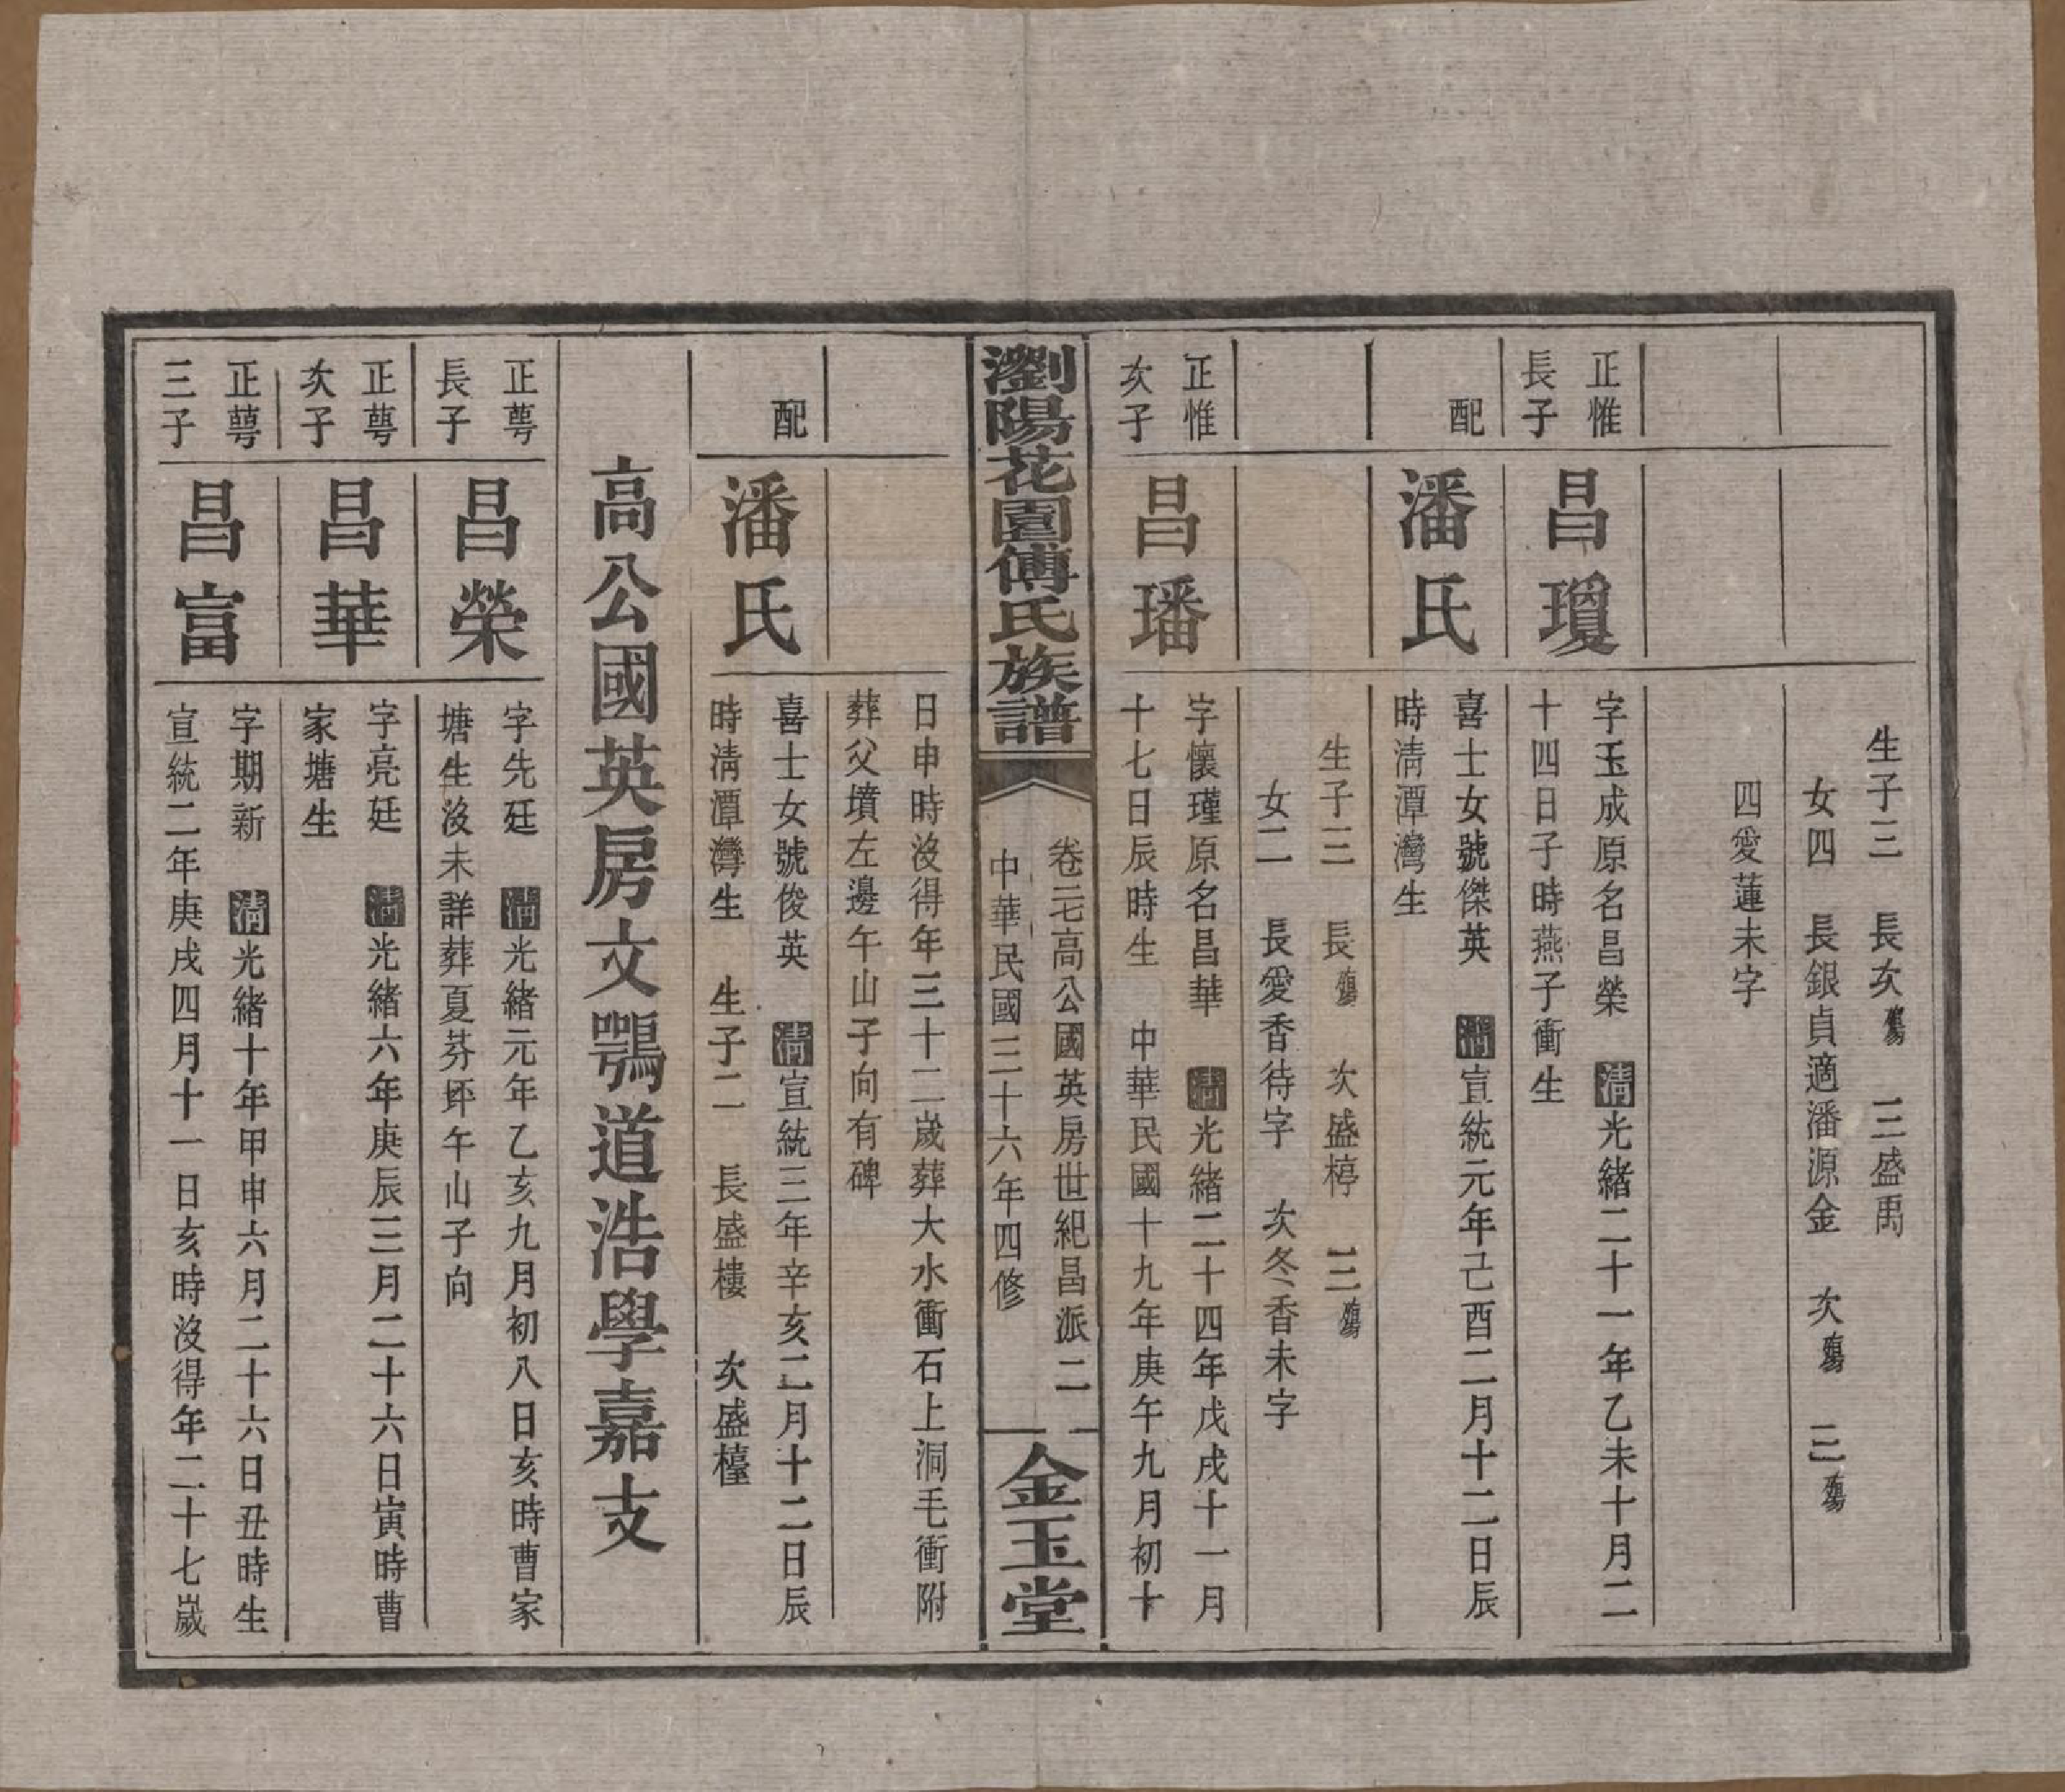 生子三　長次殤　三盛禹
女四　長銀貞適潘源金　次殤　三殤
四愛蓮未字
正惟
長子
昌瓊
字玉成原名昌榮　清光緒二十一年乙未十月二
十四日子時燕子衝生
配
潘氏
喜士女號傑英　清宣統元年己酉二月十二日辰
時清潭灣生
生子三　長殤　次盛楟　三殤
女二　長愛香待字　次冬香未字
正惟
次子
昌璠
字懷瑾原名昌華　清光緒二十四年戊戌十一月
十七日辰時生　中華民國十九年庚午九月初十
瀏陽花園傅氏族譜
卷三七高公國英房世紀昌派二
中華民國三十六年四修
金玉堂
日申時沒得年三十二歲葬大水衝石上洞毛衝附
葬父墳左邊午山子向有碑
配
潘氏
喜士女號俊英　清宣統三年辛亥二月十二日辰
時清潭灣生　生子二　長盛樓　次盛檯
高公國英房文鶚道浩學嘉支
正蕚
長子
昌榮
字先廷　清光緒元年乙亥九月初八日亥時曹家
塘生沒未詳葬夏芬坏午山子向
正蕚
次子
昌華
字亮廷　清光緒六年庚辰三月二十六日寅時曹
家塘生
正蕚
三子
昌富
字期新　清光緒十年甲申六月二十六日丑時生
宣統二年庚戌四月十一日亥時沒得年二十七歲